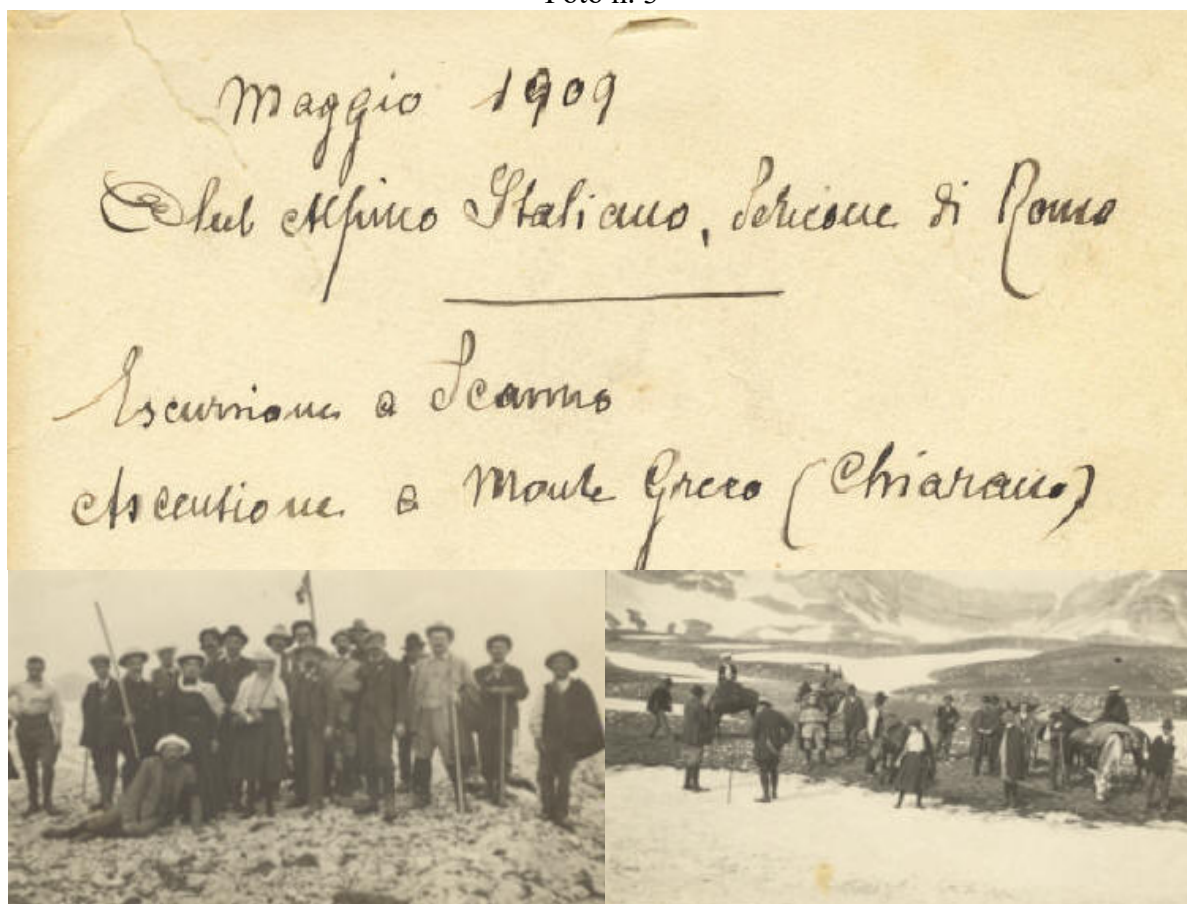 Foto n.
Maggio 1909
Club Alpino Italiano, Sezione di Roma
Escursione a Scanno
Ascensione a Monte Greco (Chiarano)